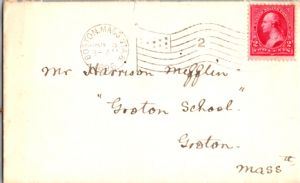 BOSTON, MASS.
2
Mr Harrison Mifflin
"Groton School"
Groton
Mass